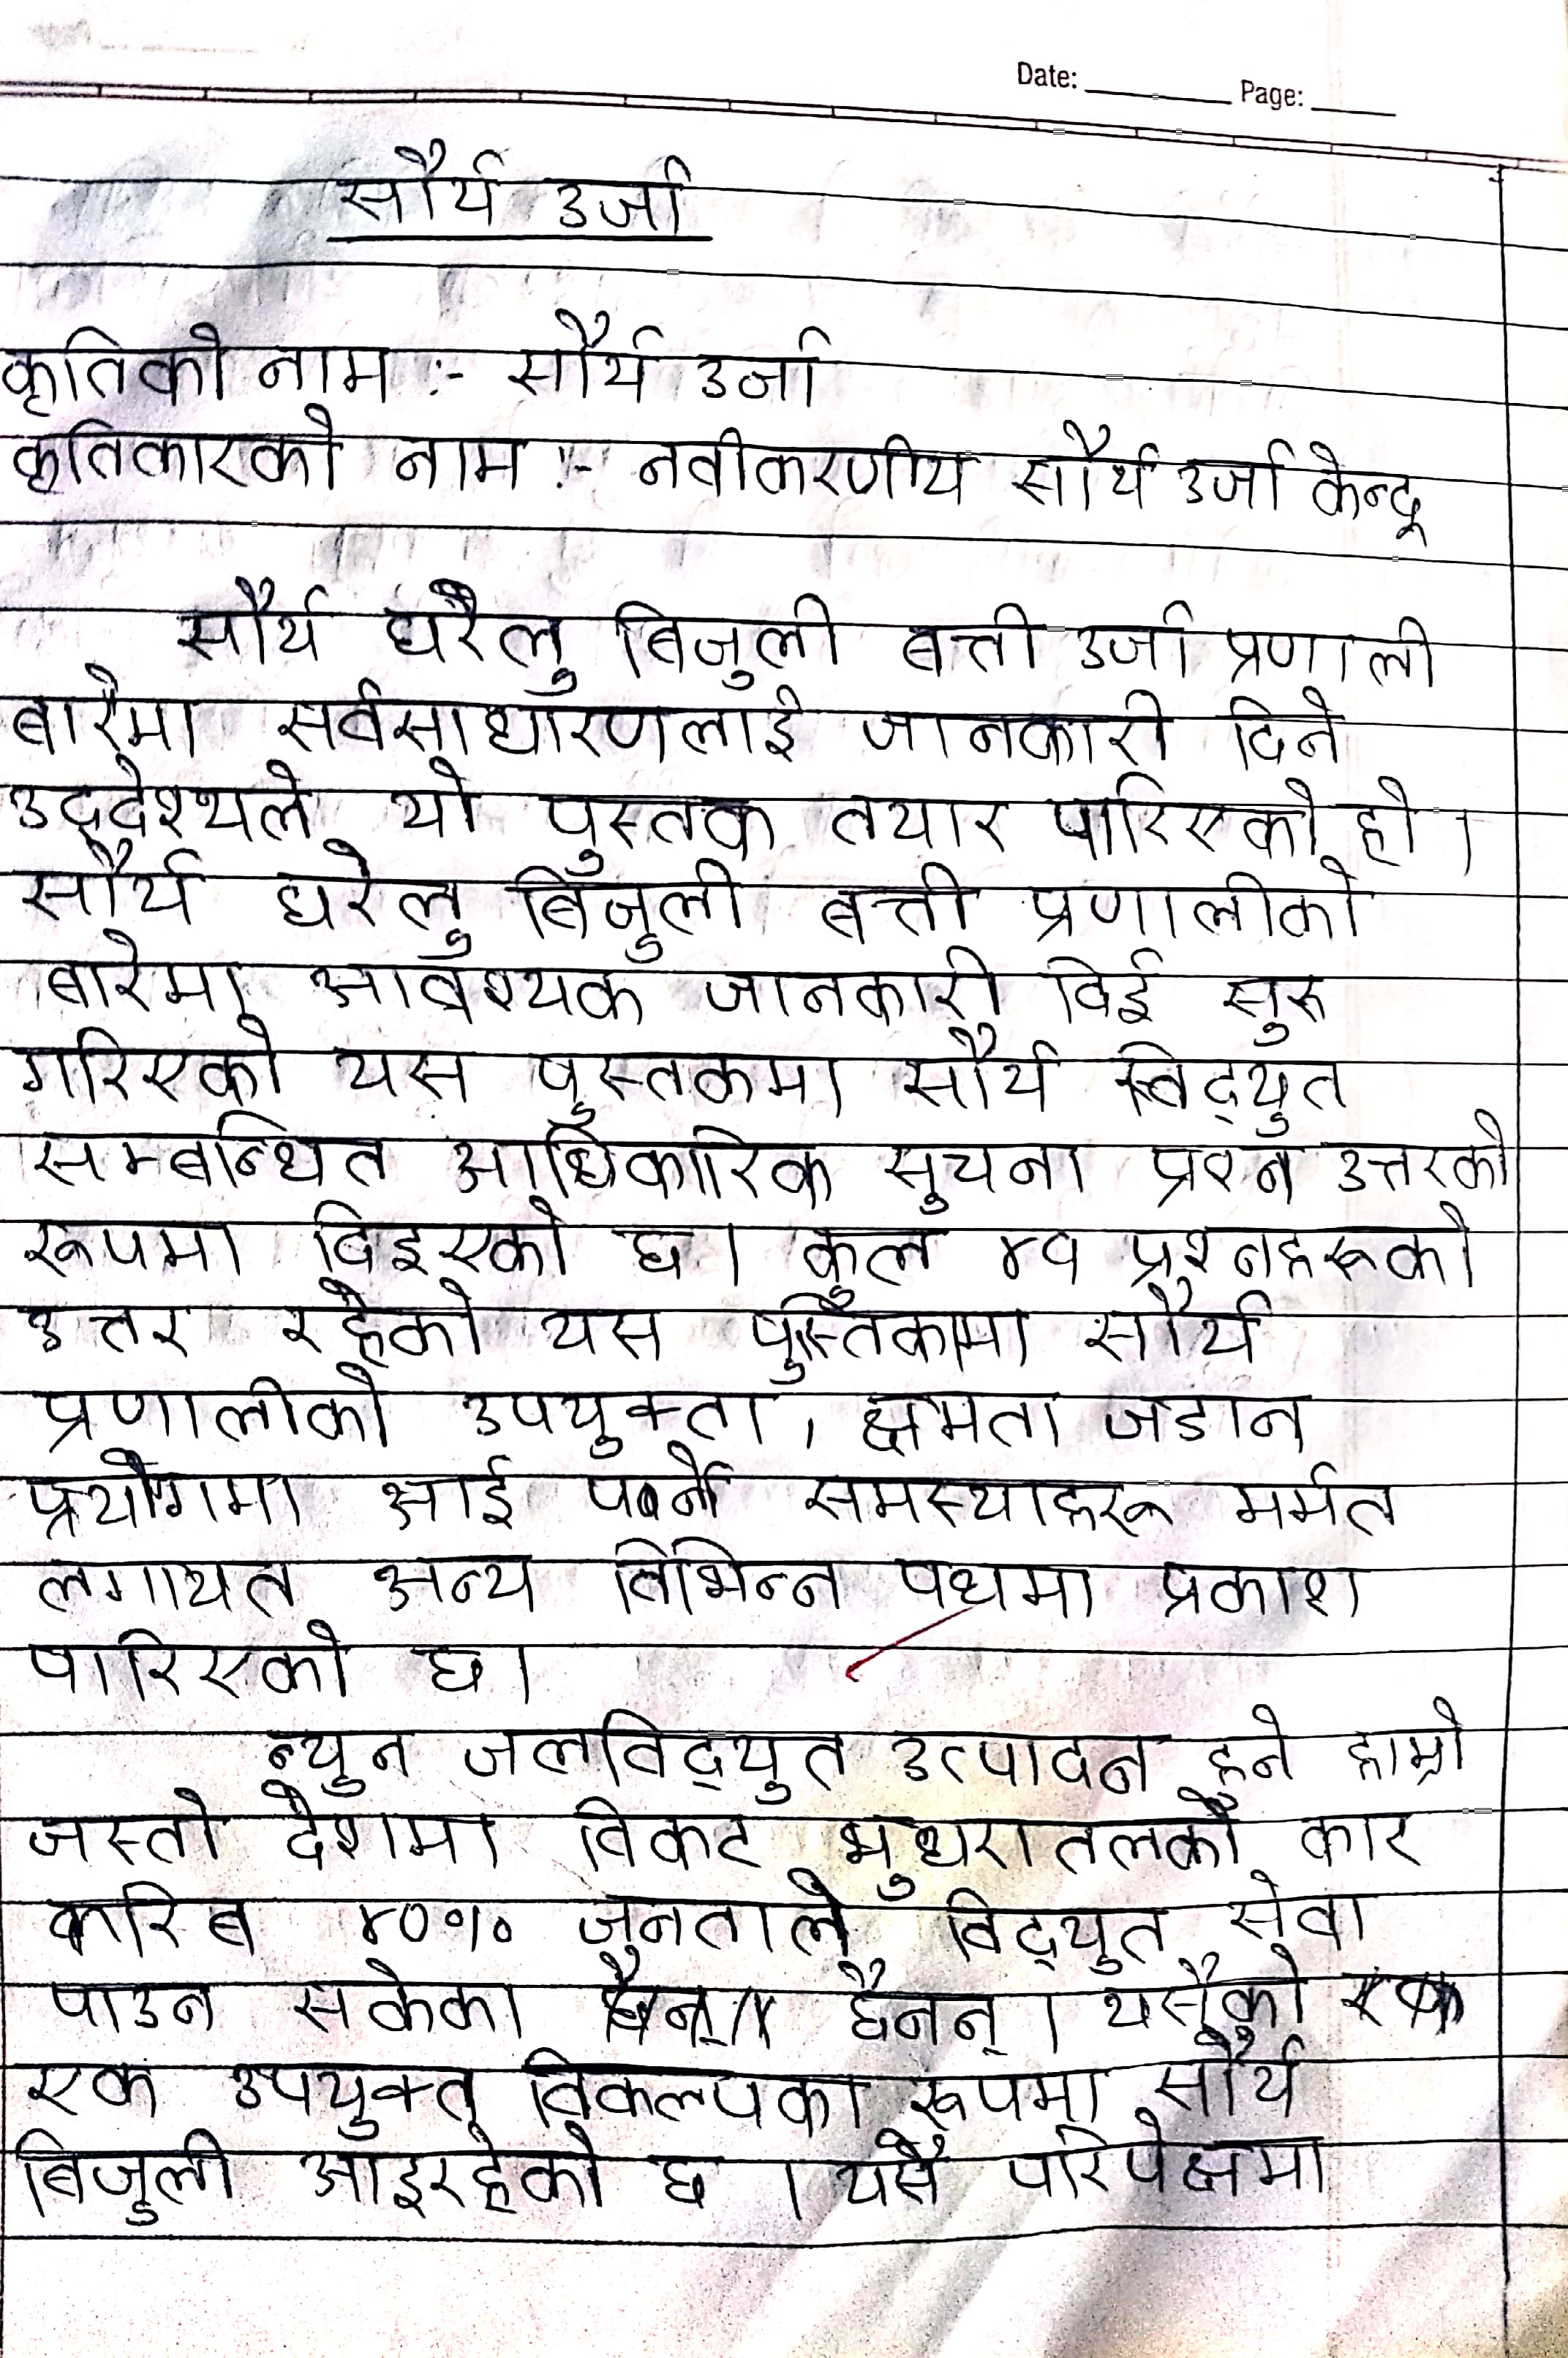 Date: Page:
सौर्य उर्जा
कृतिको नाम :- सौर्य उर्जा
कृतिकारको नाम :- नवीकरणीय सौर्य उर्जा केन्द्र
सौर्य घरेलु बिजुली बत्ती उर्जा प्रणाली
बारेमा सर्वसाधारणलाई जानकारी दिने
उद्देश्यले यो पुस्तक तयार पारिएको हो ।
सौर्य घरेलु बिजुली बत्ती प्रणालीको
बारेमा आवश्यक जानकारी दिई सुरु
गरिएको यस पुस्तकमा सौर्य विद्युत
सम्बन्धित आधिकारिक सुचना प्रश्न उत्तरको
रूपमा दिइएको छ । कुल ४१ प्रश्नहरूको
उत्तर रहेको यस पुस्तिकामा सौर्य
प्रणालीको उपयुक्ता, क्षमता जडान
प्रयोगमा आई पर्ने समस्याहरू मर्मत
लगायत अन्य विभिन्न पक्षमा प्रकाश
पारिएको छ ।
न्युन जलविद्युत उत्पादन हुने हाम्रो
जस्तो देशमा विकट भुधरातलको कार
करिब ४०% जनताले विद्युत सेवा
पाउन सकेका छैनन् । यसैको
एक उपयुक्त विकल्पका रूपमा सौर्य
बिजुली आइरहेको छ । यसै परिपेक्षमा